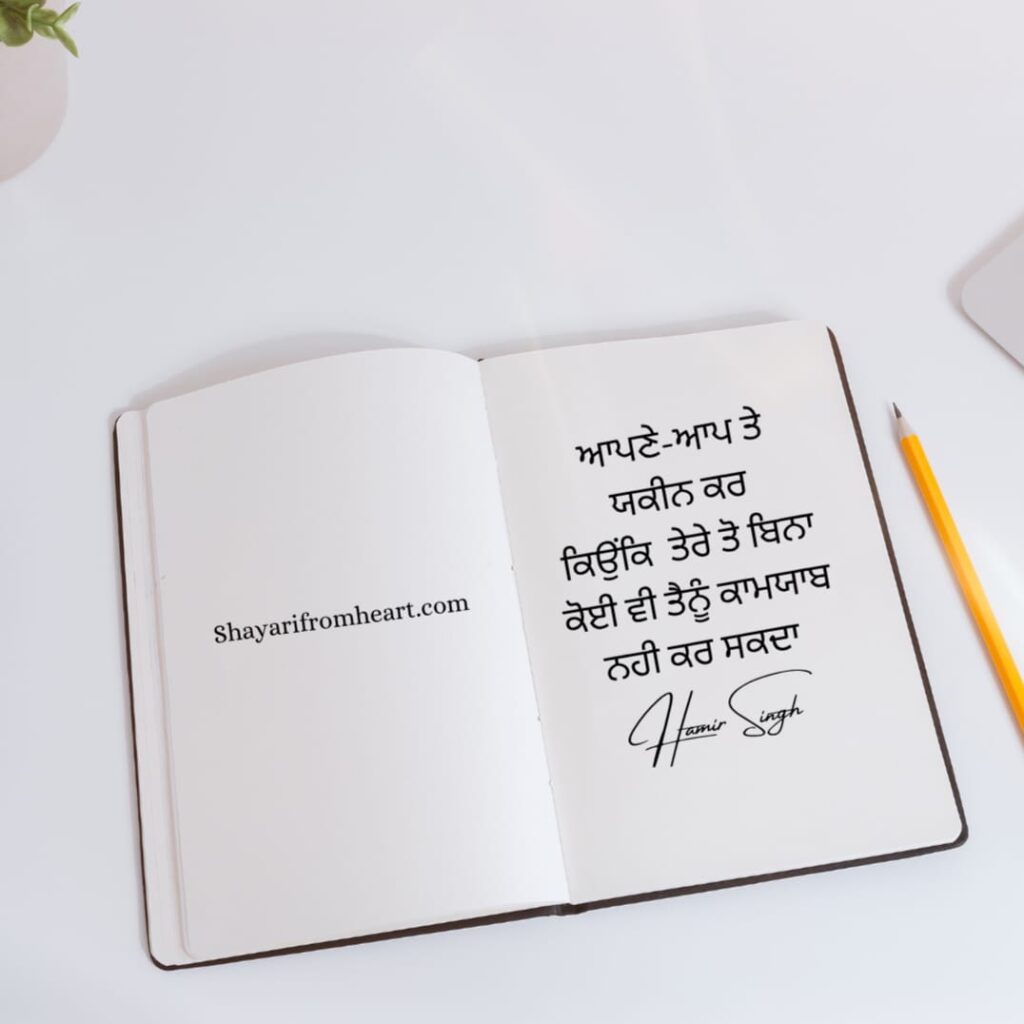 Shayarifromheart.com
ਆਪਣੇ-ਆਪ ਤੇ
ਯਕੀਨ ਕਰ
ਕਿਉਂਕਿ ਤੇਰੇ ਤੋ ਬਿਨਾ
ਕੋਈ ਵੀ ਤੈਨੂੰ ਕਾਮਯਾਬ
ਨਹੀ ਕਰ ਸਕਦਾ
Hamir Singh